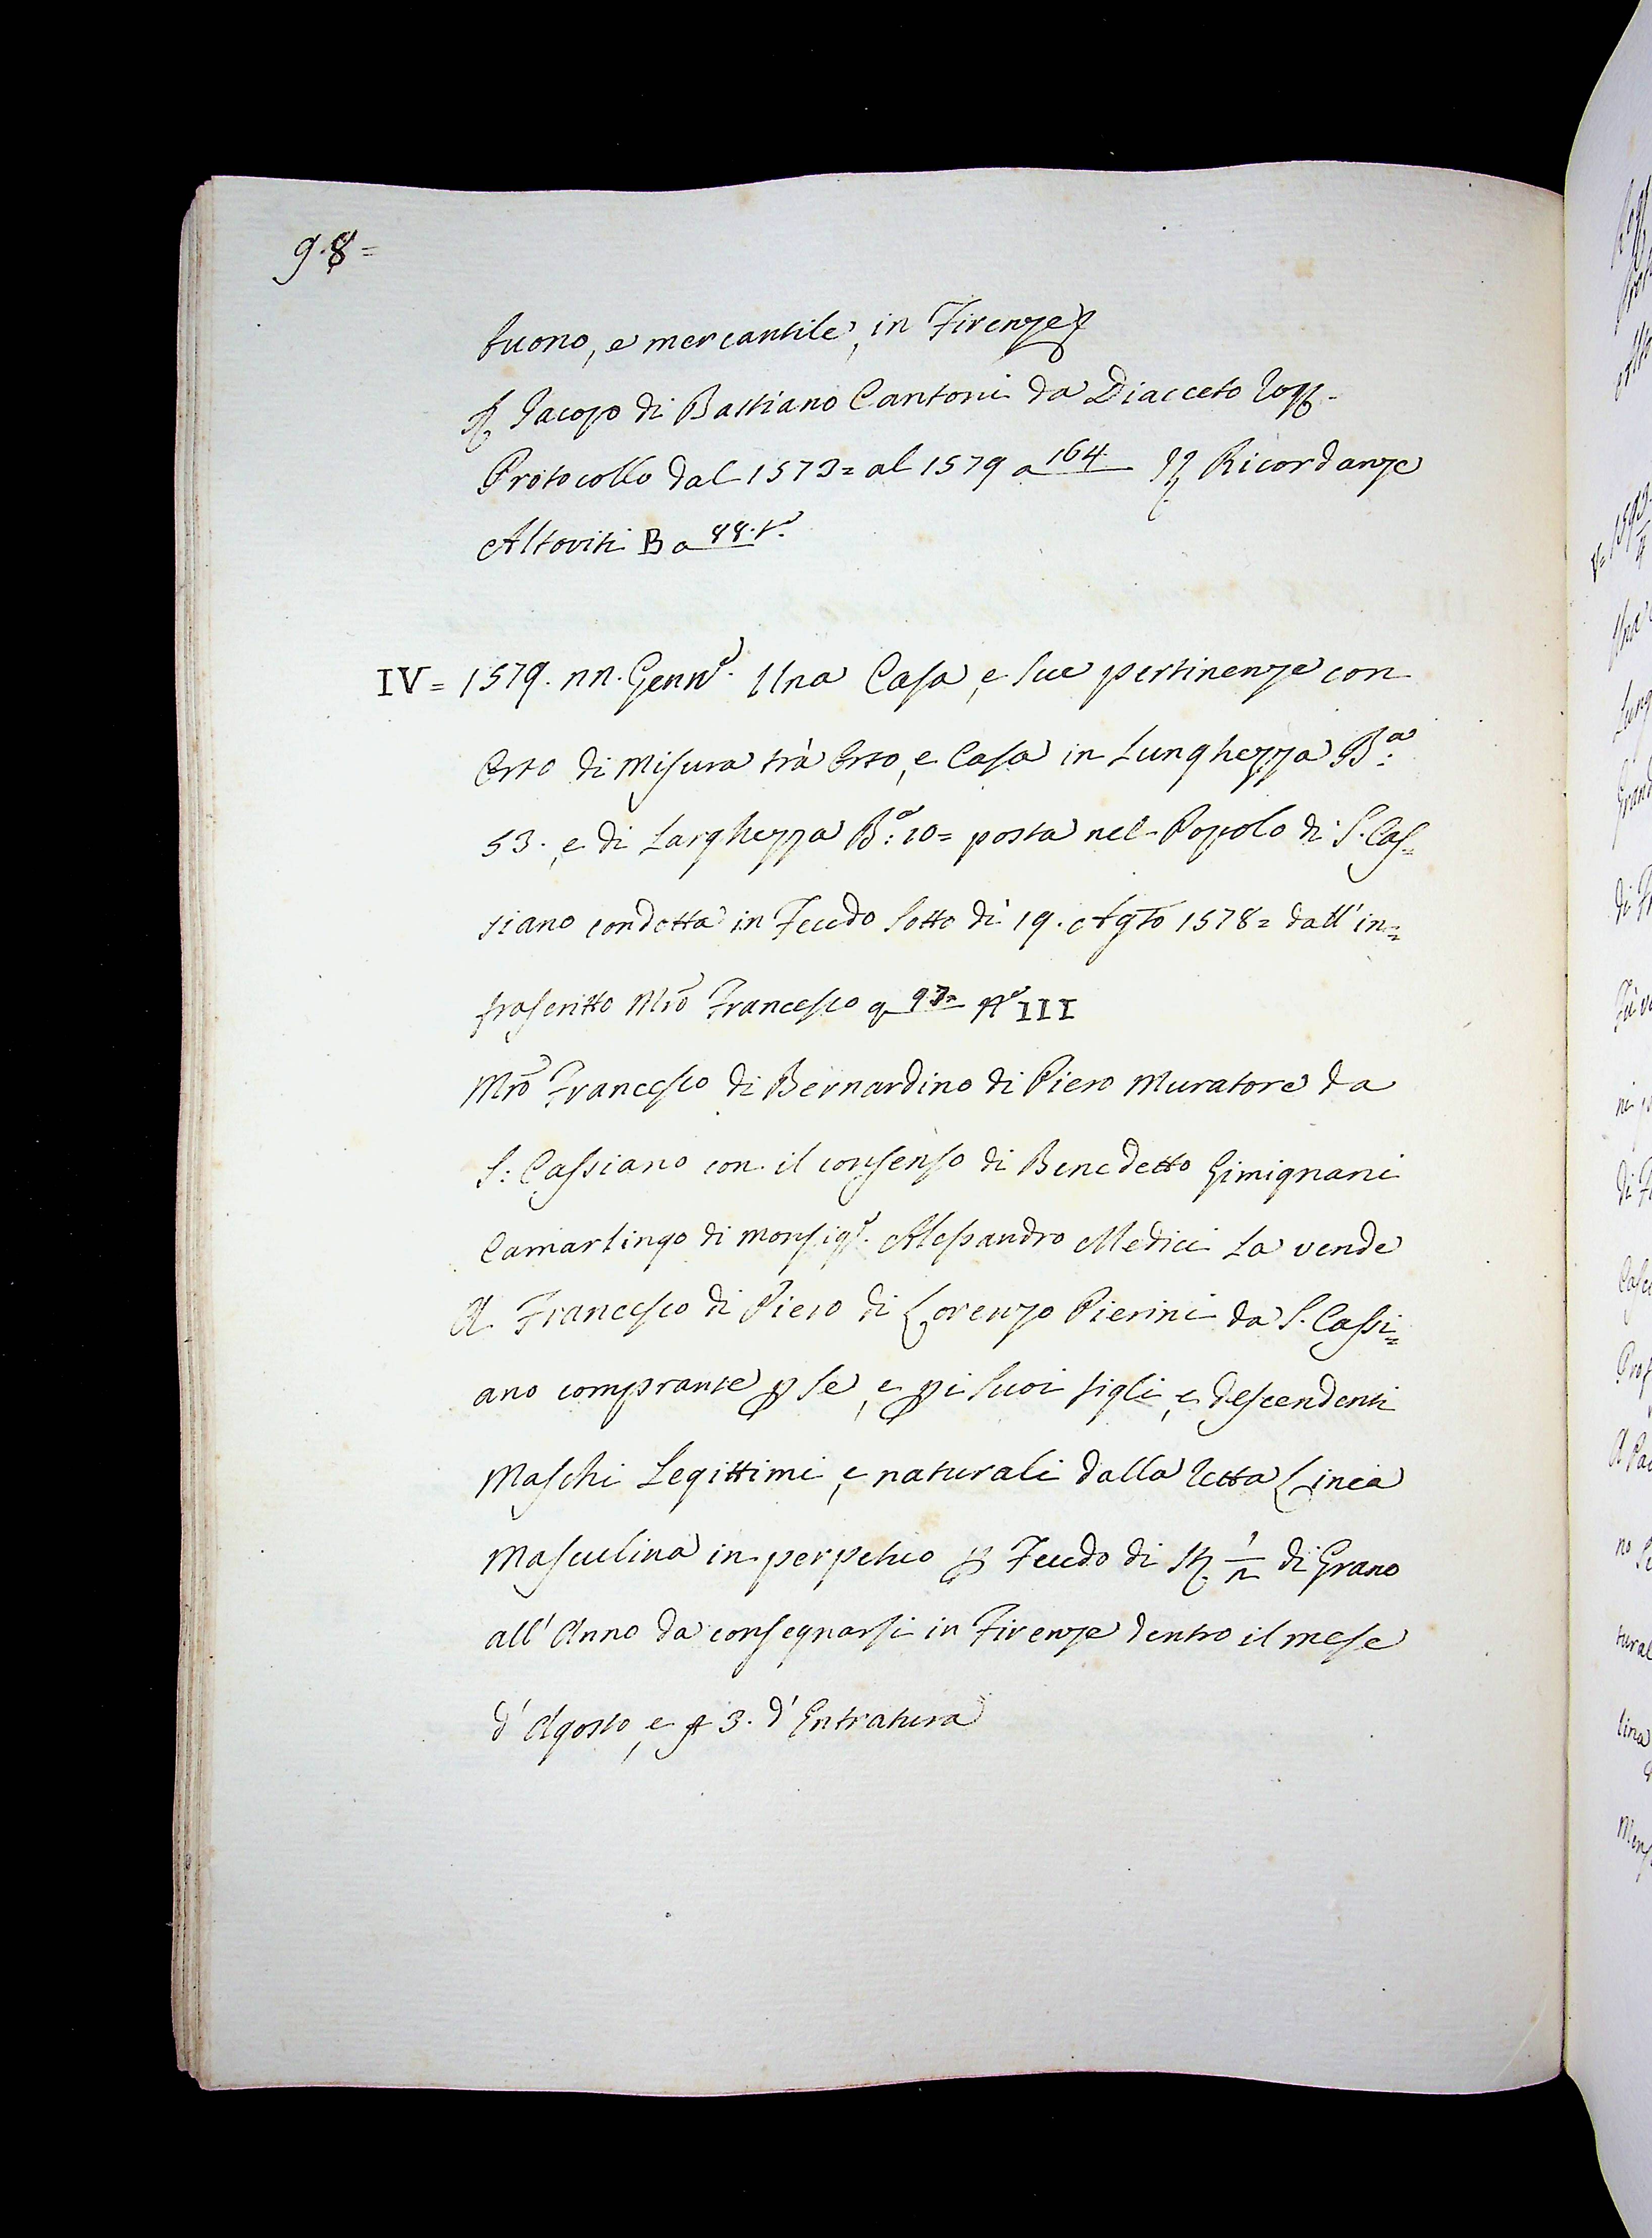 98=
buono, e mercantile, in Firenze
Jacopo di Bastiano Cantoni da Diacceto Rogò
Protocollo dal 1573= al 1579 a 164 Ricordanze
Altoviti B a 88.
IV= 1579. nn. Genn.º Una Casa, e sue pertinenze con
Orto di misura trà Orto, e Casa in Lunghezza B:ª
53. e di Larghezza B:ª 10= posta nel Popolo di S. Cas=
siano condotta in Feudo sotto dì 19. Agto 1578= dall'in=
frascritto Mro Francesco a 97= Nº III
Mro Francesco di Bernardino di Piero Muratore da
S: Cassiano con il consenso di Benedetto Gimignani
Camarlingo di Monsigr. Alessandro Medici La vende
A Francesco di Piero di Lorenzo Pierini da S. Cassi=
ano comprante p se, e p i suoi figli, e descendenti
Maschi Legittimi, e naturali dalla retta Linea
Masculina in perpetuo p Feudo di di Grano
all'Anno da consegnarsi in Firenze dentro il mese
d'Agosto, e 3. d'Entratura